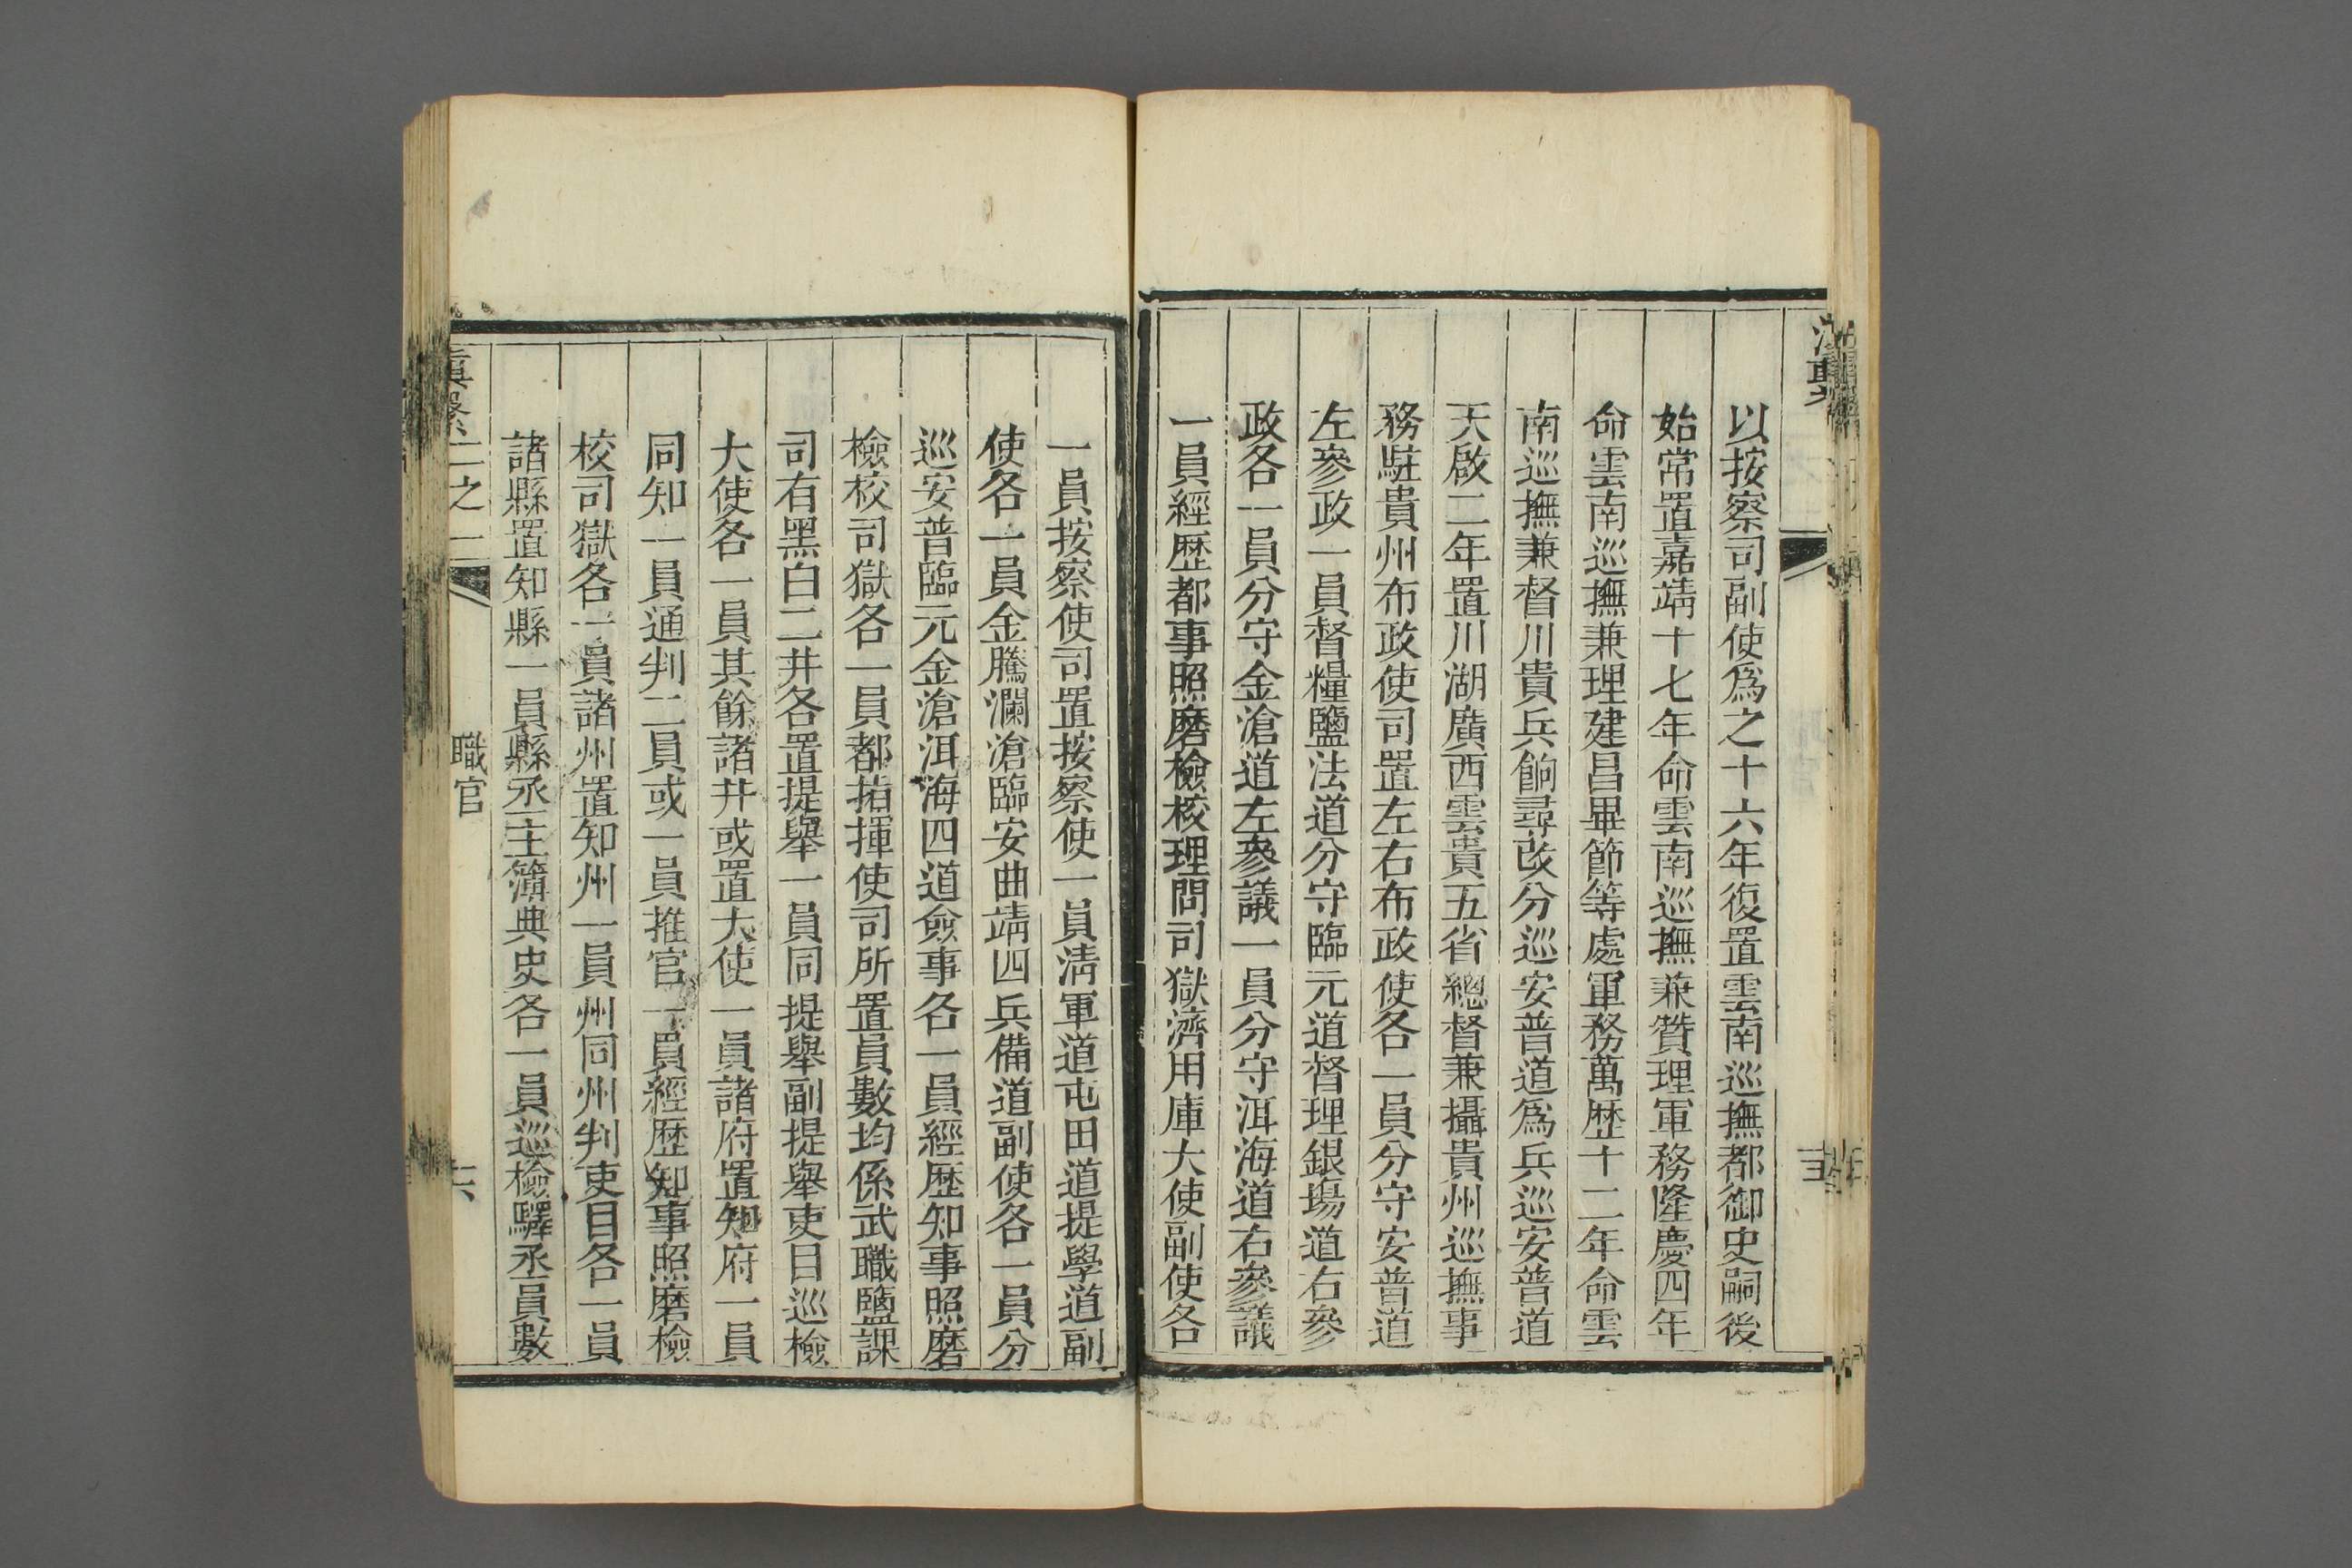 以按察司副使爲之十六年復置雲南巡撫都御史嗣後
始常置嘉靖十七年命雲南巡撫兼贊理軍務隆慶四年
命雲南巡撫兼理建昌畢節等處軍務萬歷十二年命雲
南巡撫兼督川貴兵餉尋改分巡安普道爲兵巡安普道
天啟二年置川湖廣西雲貴五省總督兼攝貴州巡撫事
務駐貴州布政使司置左右布政使各一員分守安普道
左參政一員督糧鹽法道分守臨元道督理銀場道右參
政各一員分守金滄道左參議一員分守洱海道右參議
一員經歷都事照磨檢校理問司獄濟用庫大使副使各
一員按察使司置按察使一員淸軍道屯田道提學道副
使各一員金騰瀾滄臨安曲靖四兵備道副使各一員分
巡安普臨元金滄洱海四道僉事各一員經歷知事照磨
檢校司獄各一員都指揮使司所置員數均係武職鹽課
司有黑白二井各置提舉一員同提舉副提舉吏目巡檢
大使各一員其餘諸井或置大使一員諸府置知府一員
同知一員通判二員或一員推官一員經歷知事照磨檢
校司獄各一員諸州置知州一員州同州判吏目各一員
諸縣置知縣一員縣丞主簿典史各一員巡檢驛丞員數
滇繫二之二 職官 十六